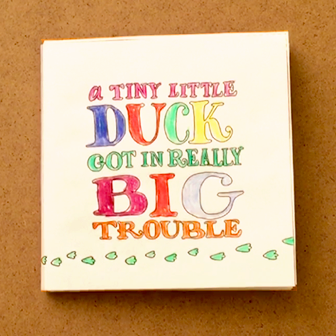 A TINY LITTLE
DUCK
GOT IN REALLY
BIG
TROUBLE